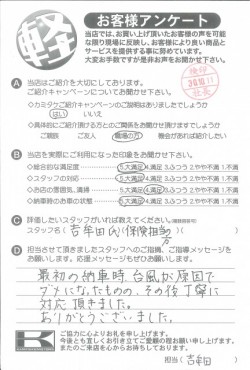 軽
お客様アンケート
当店では、お買い上げ頂いたお客様の声を可能
な限り現場に反映し、お客様により良い商品と
サービスを提供する事に努めています。
大変お手数ですが是非お声をお聞かせ下さい。
A 当店はご紹介を大切にしております。
ご紹介キャンペーンについてお聞かせ下さい。
・カミタケご紹介キャンペーンのご説明はありましたでしょうか
はい いいえ
・具体的にご紹介頂ける方とのご関係をお聞かせ頂けますでしょうか
ご親族 ご友人 職場の方 機会があれば紹介したい
B 当店を実際にご利用になった印象をお聞かせ下さい。
・総合的な満足度 5.大満足 4.満足 3.ふつう 2.やや不満 1.不満
・スタッフの対応 5.大満足 4.満足 3.ふつう 2.やや不満 1.不満
・お店の雰囲気、清掃 5.大満足 4.満足 3.ふつう 2.やや不満 1.不満
・納車時のお車の状態 5.大満足 4.満足 3.ふつう 2.やや不満 1.不満
C 評価したいスタッフがいれば教えてください。
スタッフ名( 吉牟田 保険担当 )
D 担当させて頂きましたスタッフへのご指摘、ご指導メッセージ
をお願いします。応援メッセージもお願いします。
最初の納車時、台風が原因で
ダメになったものの、その後丁寧に
対応頂きました。
ありがとうございました。
K
ご協力に心よりお礼を申し上げます。
今後とも宜しくお引き立てご愛顧の程お願い申し上げます。
またのご来店を心からお待ちしております。
担当( 吉牟田 )